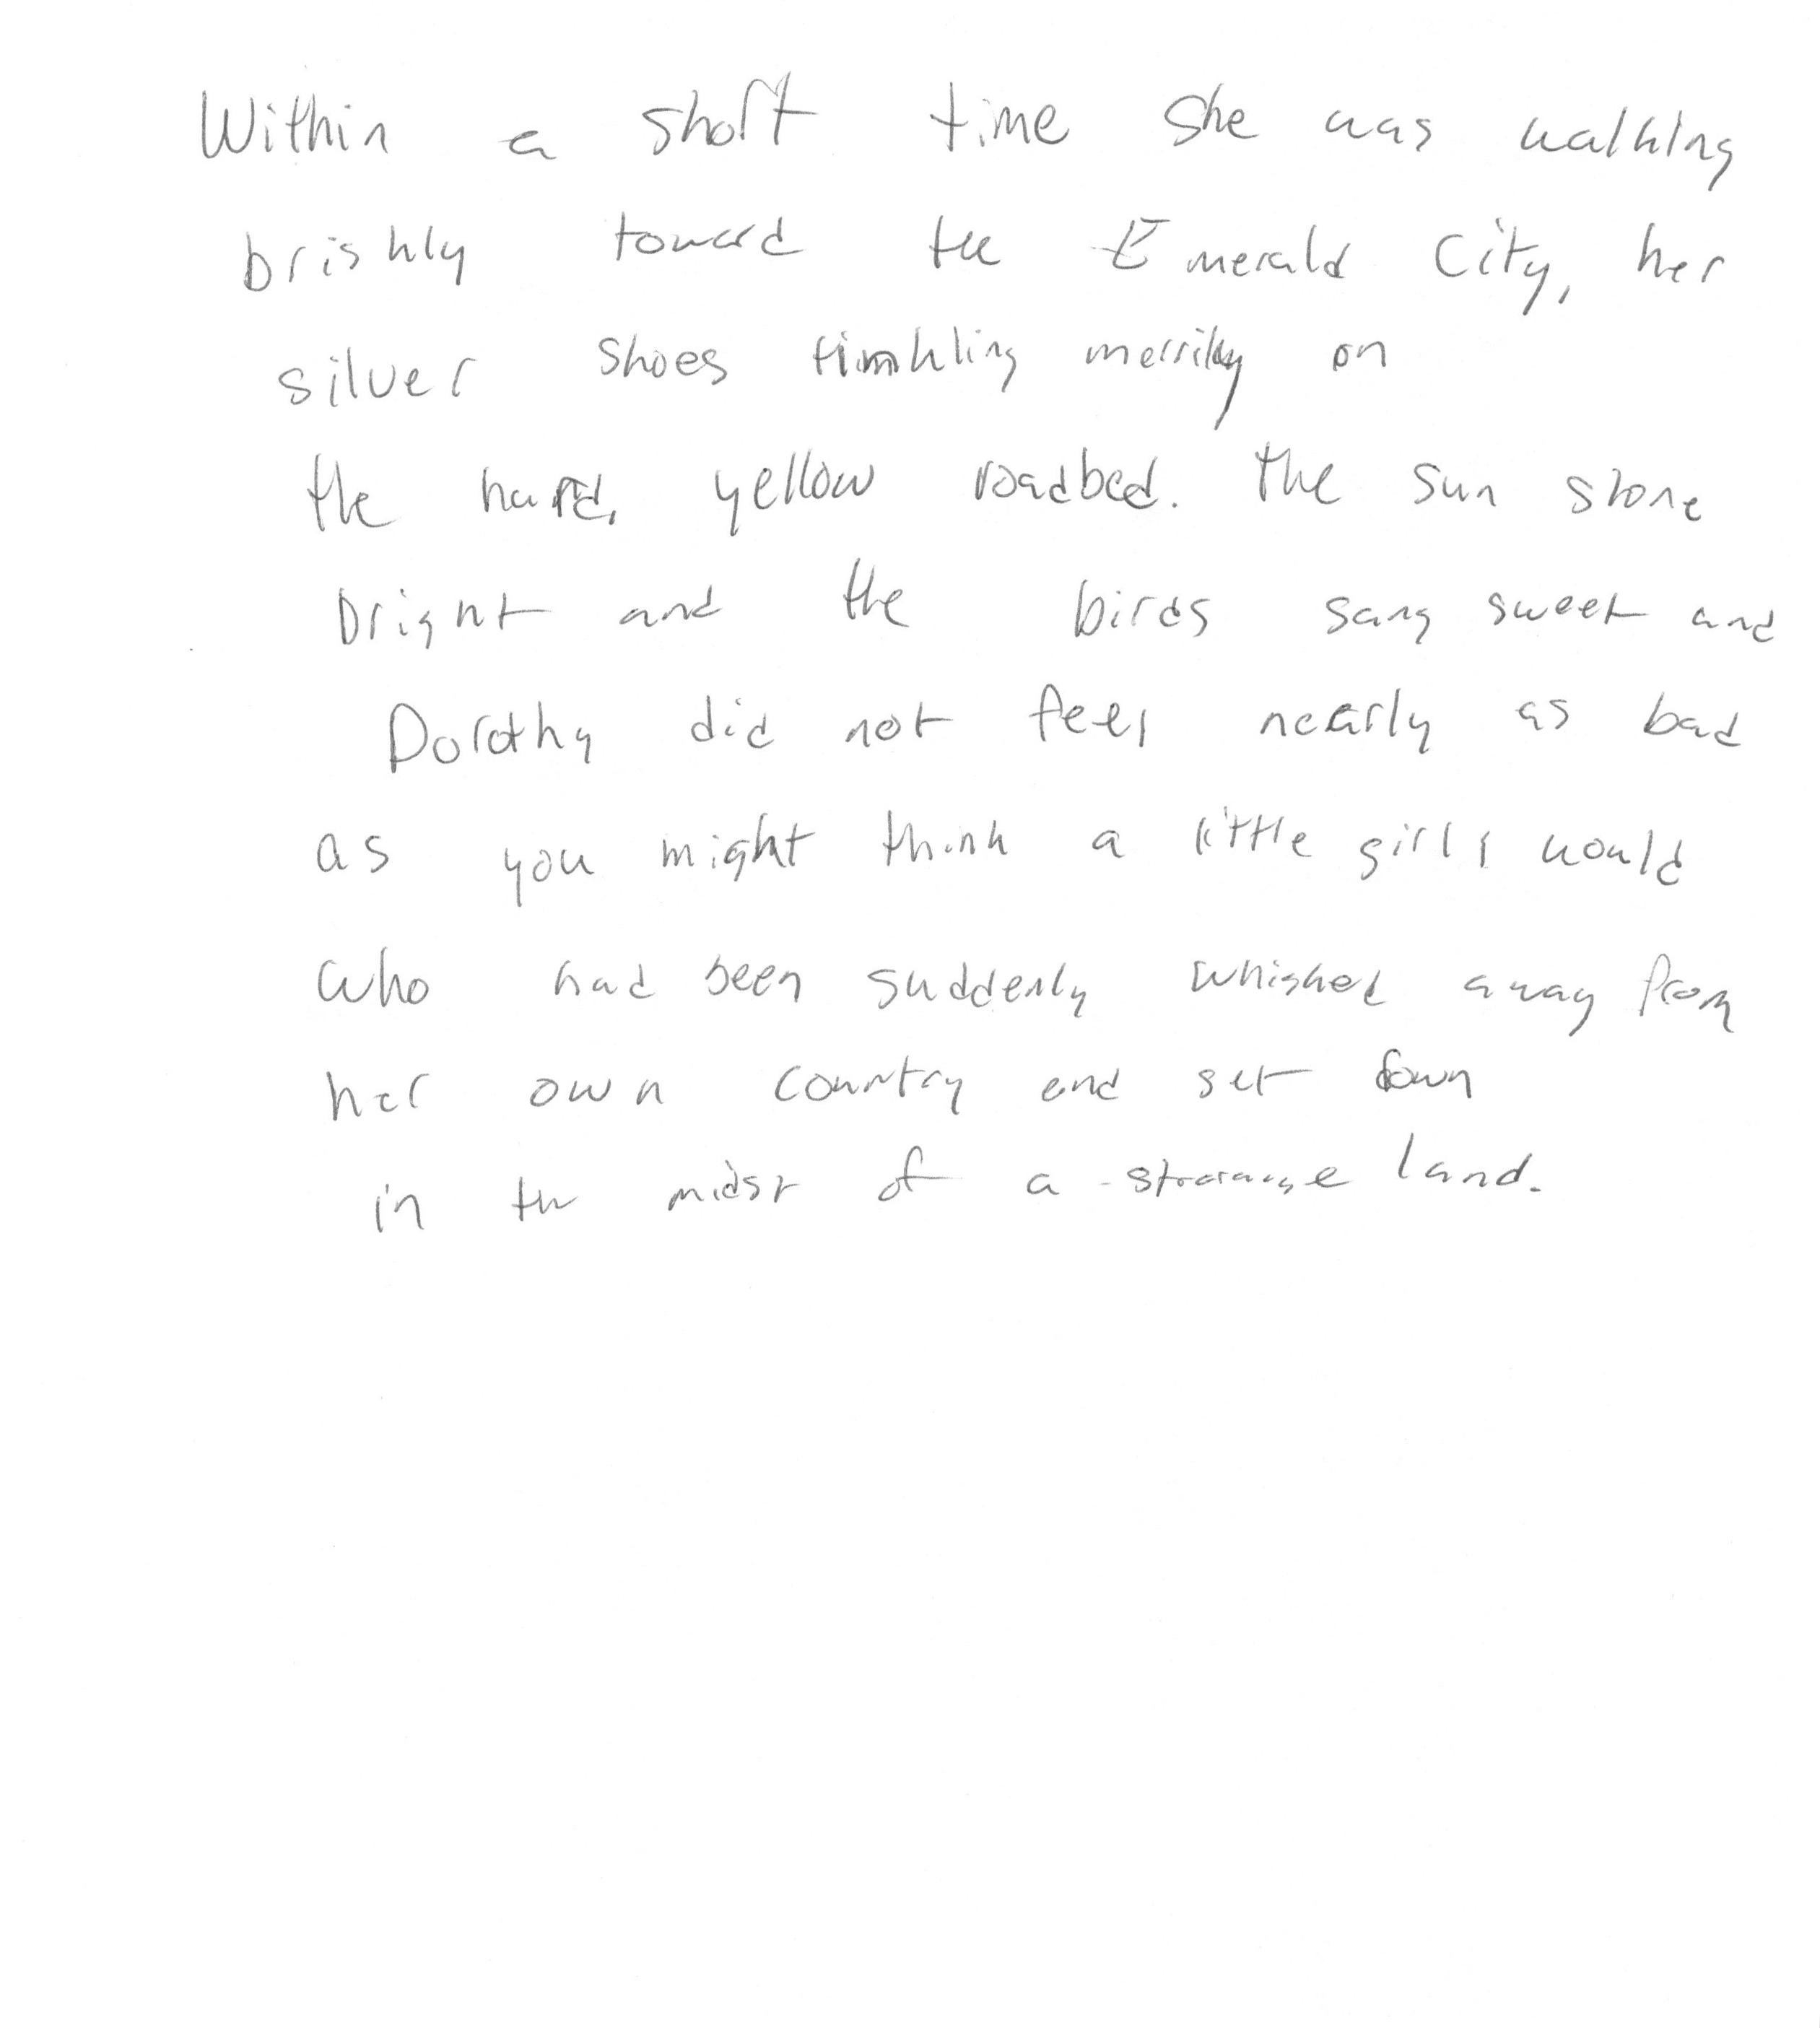 Within a short time she was walking
briskly toward the Emerald City, her
silver shoes tinkling merrily on
the hard, yellow roadbed. The sun shone
bright and the birds sang sweet and
Dorothy did not feel nearly as bad
as you might think a little girl would
who had been suddenly whisked away from
her own country and set down
in the midst of a strange land.